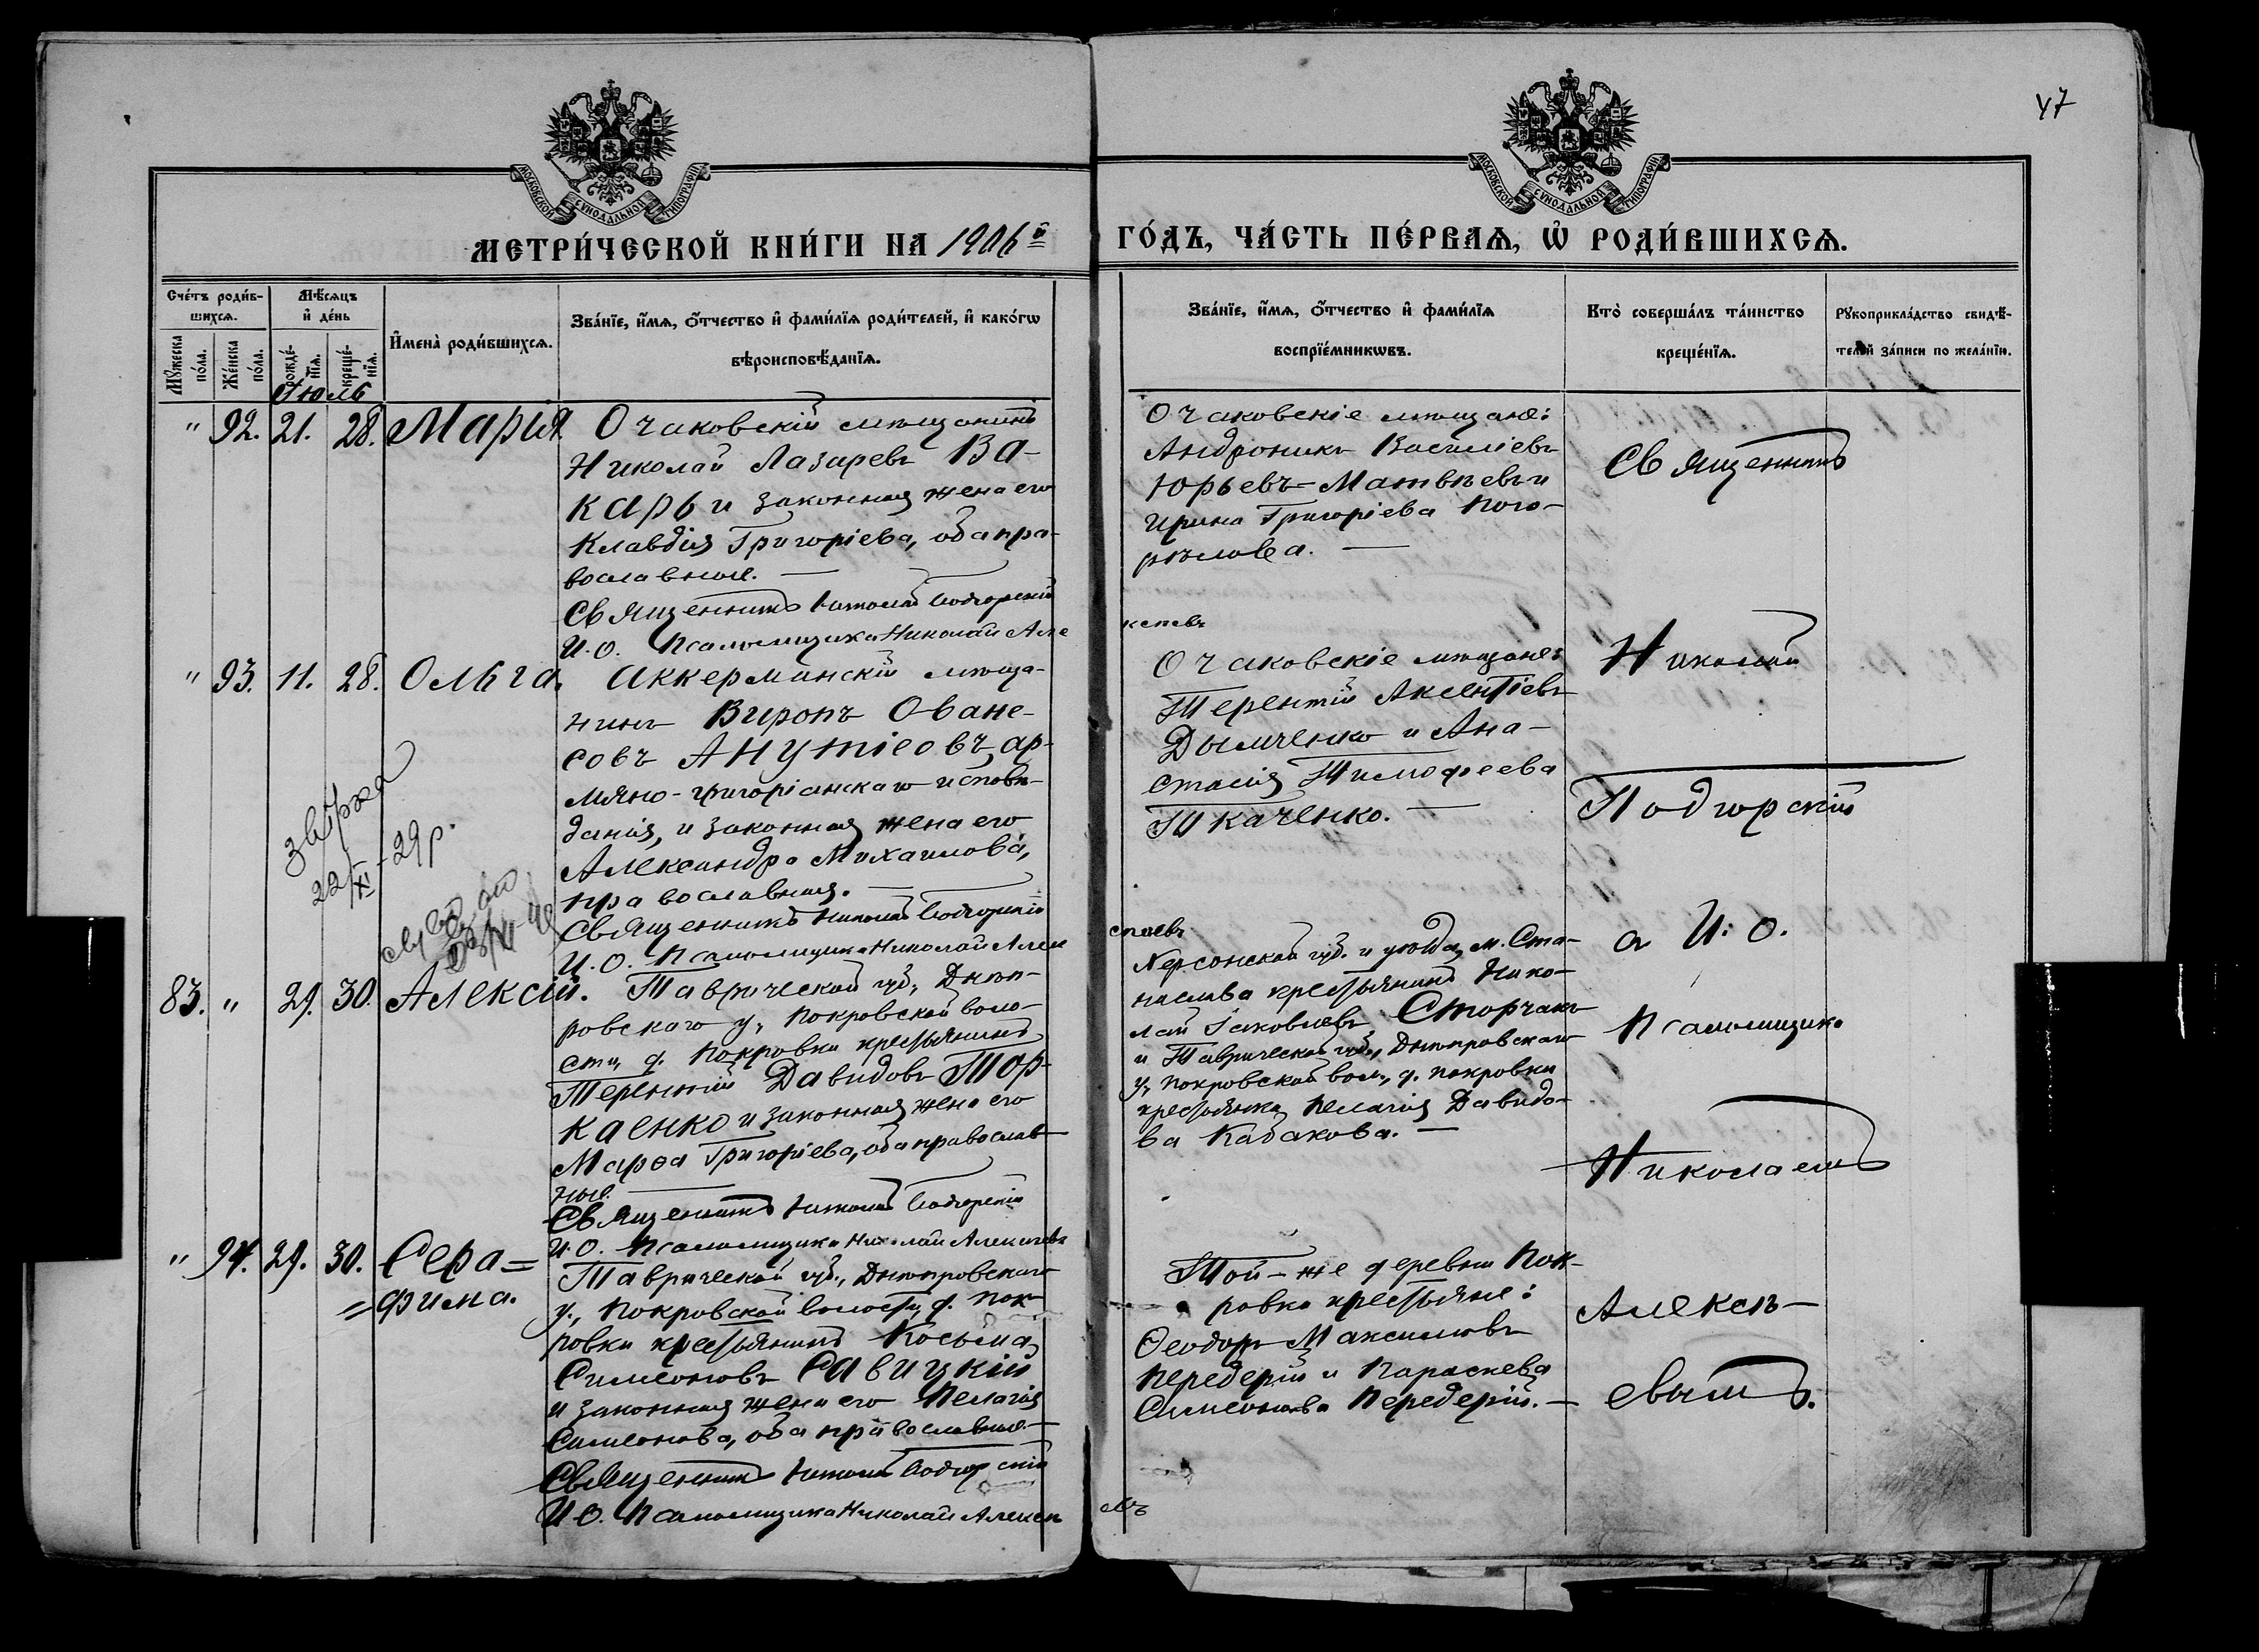 47
МОСКОВСКОЙ СѴНОДАЛЬНОЙ ТИПОГРАФІИ
МОСКОВСКОЙ СѴНОДАЛЬНОЙ ТИПОГРАФІИ
МЕТРИ́ЧЕСКОЙ КНИ́ГИ НА 1906й
ГО́ДЪ, ЧА́СТЬ ПЕ́РВАѦ, Ѡ҆ РОДИ́ВШИХСѦ.
Сче́тъ роди́в-
шихсѧ.
Мꙋ́жеска по́ла.
Же́нска по́ла.
Мѣ́сѧцъ
и҆ де́нь
рожде́-
нїѧ.
креще́-
нїѧ.
И҆мена̀ роди́вшихсѧ.
Зва́нїе, и҆́мѧ, ѻ҆́тчество и҆ фами́лїѧ роди́телей, и҆ како́гѡ
вѣроисповѣ́данїѧ.
Зва́нїе, и҆́мѧ, ѻ҆́тчество и҆ фами́лїѧ
воспрїе́мникѡвъ.
Кто̀ соверша́лъ та́инство
креще́нїѧ.
Рꙋкоприкла́дство свидѣ́-
телей за́писи по жела́нїю.
Іюль
" 92. 21. 28. Марія
Очаковскій мѣщанинъ
Николай Лазаревъ Ва-
карь и законная жена его
Клавдія Григоріева, оба пра-
вославные. —
Священникъ Николай Подгорскій
И. О. Псаломщика Николай Але
ксѣевъ
Очаковскіе мѣщане:
Андроникъ Василіевъ
Юрьевъ-Матвѣевъ и
Ирина Григоріева Пого-
рѣлова. —
" 93. 11. 28. Ольга.
Аккерманскій мѣща-
нинъ Виропъ Ована-
совъ Анутіеовъ, ар-
мяно-григоріанскаго исповѣ-
данія, и законная жена его
Александра Михаилова,
православная. —
Священникъ Николай Подгорскій
И. О. Псаломщика Николай Алек
сѣевъ
Очаковскіе мѣщане:
Терентій Аксентіевъ
Дымченко и Ана-
стасія Тимофеева
Ткаченко. —
звірка
22/XI - 29 р.
83. " 29. 30. Алексій.
Таврической губ., Днѣп-
ровскаго у., Покровской воло-
сти, д. Покровки крестьянинъ
Терентій Давидовъ Тор-
каенко и законная жена его
Марѳа Григоріева, оба православ-
ные. —
Священникъ Николай Подгорскій
И. О. Псаломщика Николай Алексѣевъ
Херсонской губ. и уѣзда, м. Ста-
нислава крестьянинъ Нико-
лай Іаковлевъ Сторчакъ
и Таврической губ., Днѣпровскаго
у., Покровской вол., д. Покровки
крестьянка Пелагія Давидо-
ва Кабакова. —
" 94. 29. 30. Сера=
=фима.
Таврической губ., Днѣпровскаго
у., Покровской волости, д. Пок-
ровки крестьянинъ Косьма
Симеоновъ Савицкій
и законная жена его Пелагія
Симеонова, оба православные. —
Священникъ Николай Подгорскій
И. О. Псаломщика Николай Алексѣ
евъ
Той-же деревни Пок-
ровки крестьяне:
Ѳеодоръ Максимовъ
Передерій и Параскева
Симеонова Передерій. —
Священникъ
Николай
Подгорскій
съ И. О.
Псаломщика
Николаемъ
Алексѣ-
евымъ.